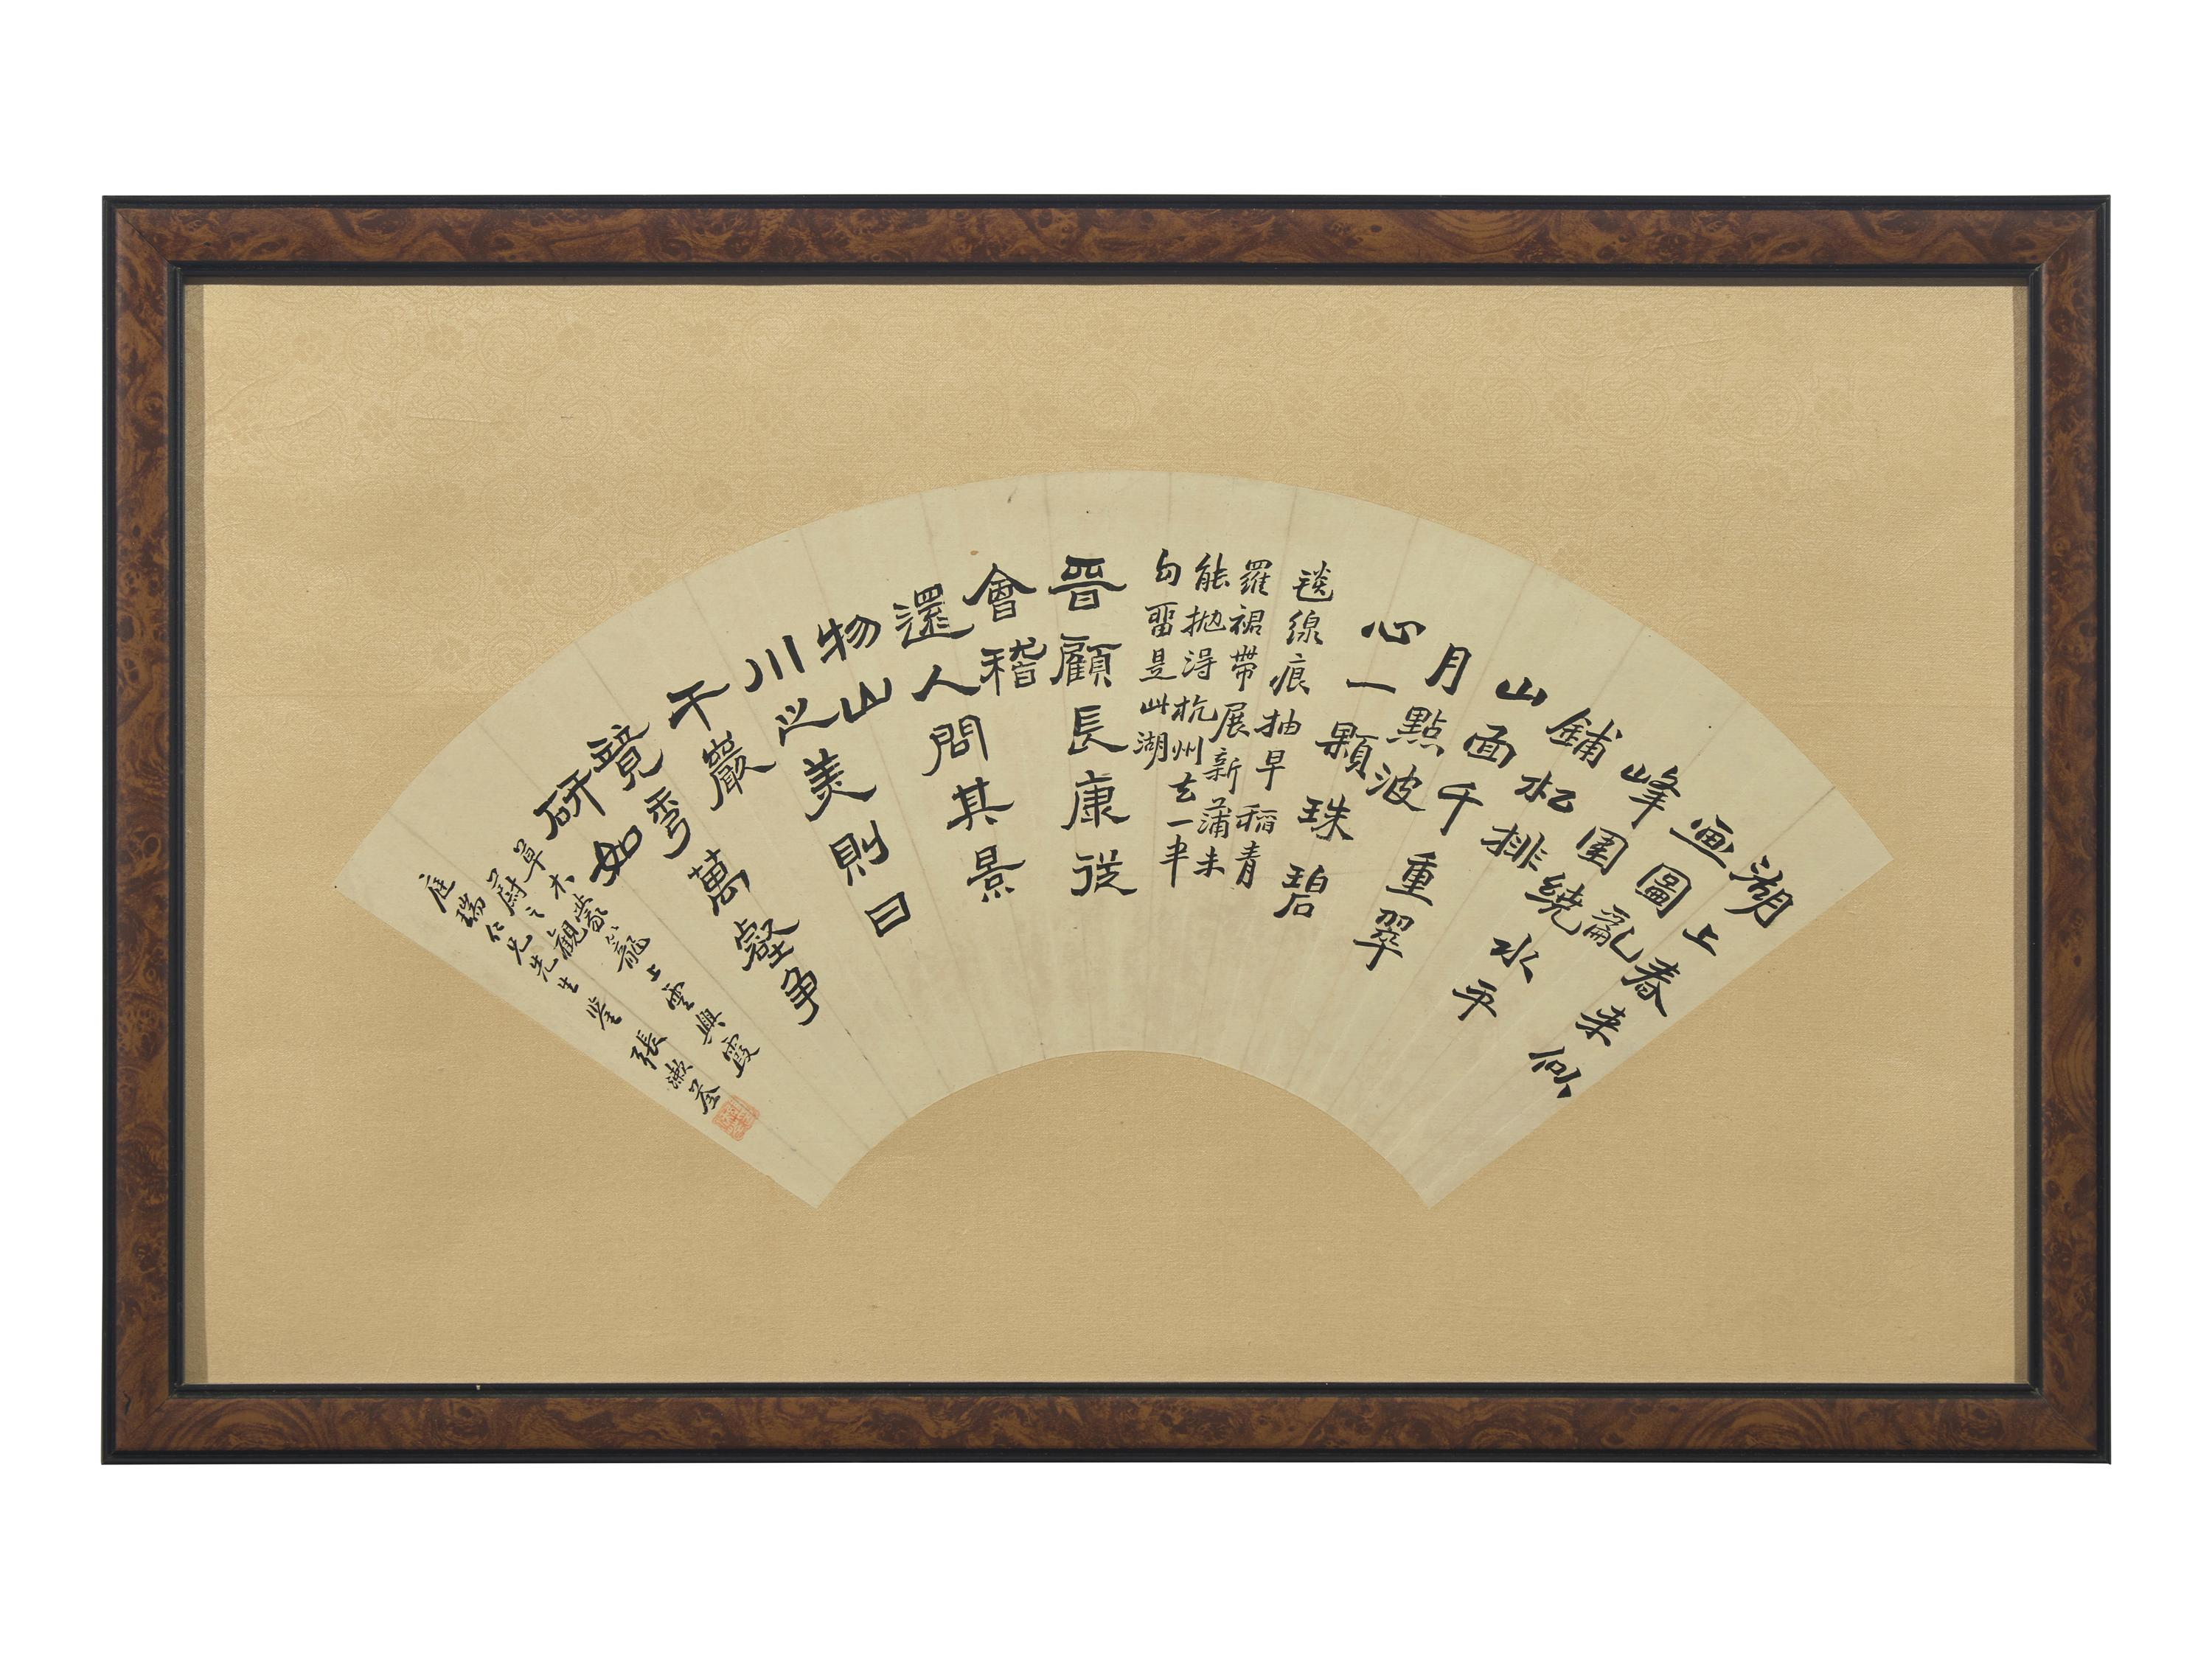 湖上春来似
画圖亂
峰圍繞水平
鋪松排
山面千重翠
月點波
心一顆珠碧
毯線痕抽早稻青
羅裙帶展新蒲未
能拋得杭州去一半
勾留是此湖
晉顧長康從
會稽
還人問其景
物山
川之美則曰
千巖
競秀萬壑争
研如
草木蒙籠上雲興霞
蔚之觀
庭瑞仁兄先生鉴 張漱荃